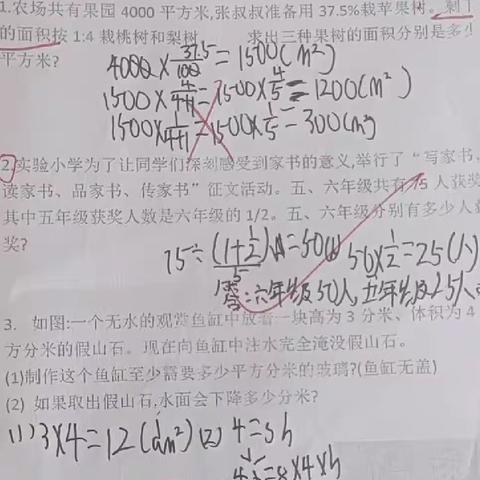 1.农场共有果园 4000 平方米,张叔叔准备用 37.5%栽苹果树。剩
的面积按 1:4 栽桃树和梨树。 求出三种果树的面积分别是多少
平方米?
4000×37.5/100=1500(m²)
1500×4/4+1=1500×4/5=1200(m²)
1500×1/4+1=1500×1/5=300(m
2.实验小学为了让同学们深刻感受到家书的意义,举行了“写家书、
读家书、品家书、传家书”征文活动。五、六年级共有 75 人获奖
其中五年级获奖人数是六年级的 1/2。五、六年级分别有多少人
奖?
75÷(1+1/2)=50(人) 50×1/2=25(人)
答:六年级50人,五年级25人
3. 如图:一个无水的观赏鱼缸中放着一块高为 3 分米、体积为 4
方分米的假山石。现在向鱼缸中注水完全淹没假山石。
(1)制作这个鱼缸至少需要多少平方分米的玻璃?(鱼缸无盖)
(2) 如果取出假山石,水面会下降多少分米?
(1)3×4=12(dm²) (2) 4=sh
=8×4×h